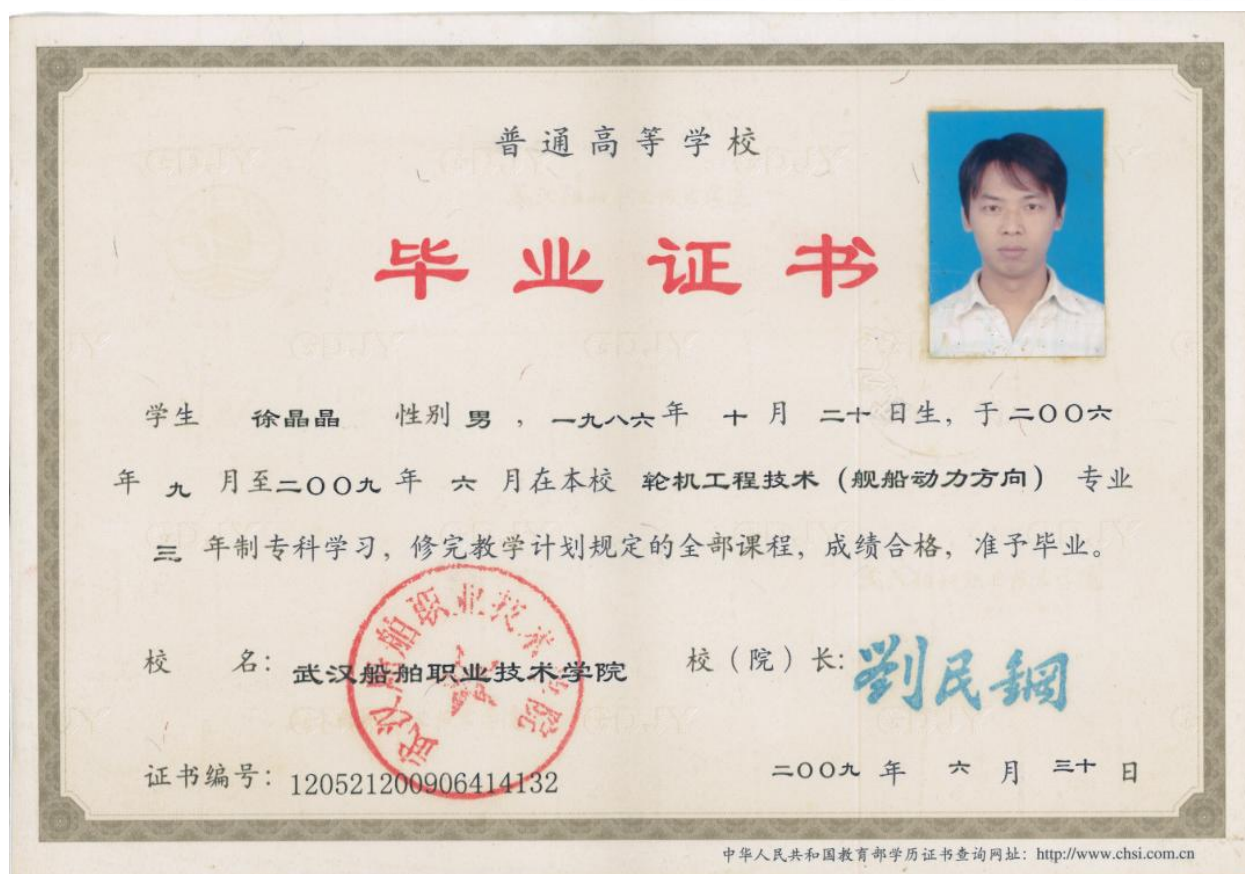 普通高等学校
毕业证书
学生 徐晶晶 性别 男 ，一九八六年 十 月 二十 日生，于二〇〇六
年 九 月至二〇〇九 年 六 月在本校 轮机工程技术（舰船动力方向） 专业
三 年制专科学习，修完教学计划规定的全部课程，成绩合格，准予毕业。
武汉船舶职业技术学院
校 名：武汉船舶职业技术学院 校（院）长：劉民鋼
证书编号：120521200906414132 二〇〇九 年 六 月 三十 日
中华人民共和国教育部学历证书查询网址：http://www.chsi.com.cn